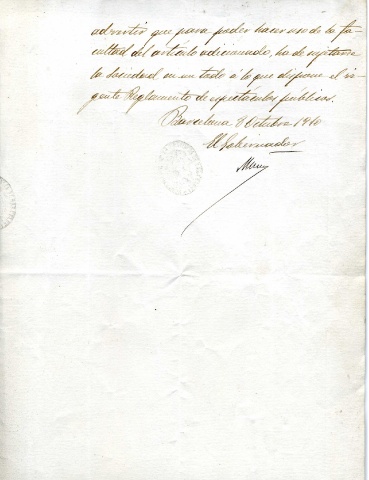 advertir que para poder hacer uso de la fa-
cultad del artículo adicionado, ha de sujetarse
la Sociedad en un todo á lo que dispone el vi-
gente Reglamento de espectáculos públicos.
Barcelona 8 Octubre 1910
El Gobernador